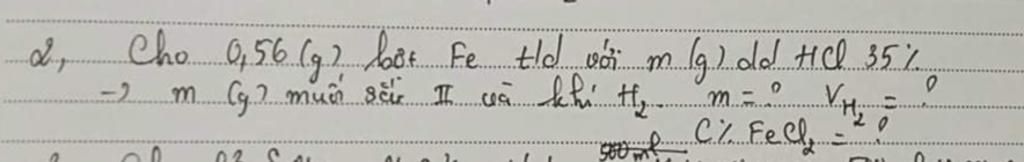 2, Cho 0,56 (g) bột Fe t/d với m (g) dd HCl 35%
→ m (g) muối sắt II và khí H₂. m = ? V_H₂ = ?
500 ml C% FeCl₂ = ?